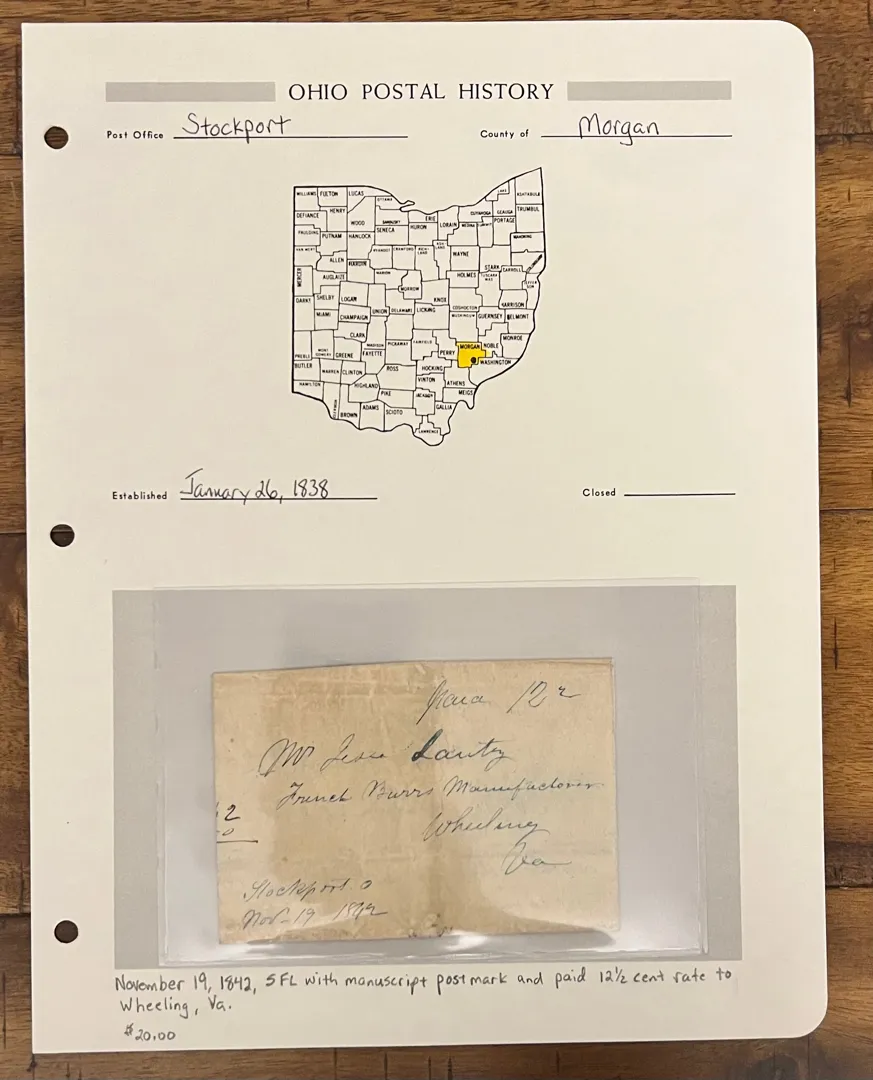 OHIO POSTAL HISTORY
Post Office Stockport County of Morgan
WILLIAMS FULTON LUCAS OTTAWA LAKE ASHTABULA
DEFIANCE HENRY WOOD SANDUSKY ERIE CUYAHOGA GEAUGA TRUMBUL
PAULDING PUTNAM HANCOCK SENECA HURON LORAIN MEDINA SUMMIT PORTAGE MAHONING
VAN WERT ALLEN HARDIN WYANDOT CRAWFORD RICH-LAND ASH-LAND WAYNE STARK CARROLL COLUMBIANA
MERCER AUGLAIZE MARION MORROW HOLMES TUSCARAWAS JEFFERSON
DARKE SHELBY LOGAN UNION DELAWARE KNOX LICKING COSHOCTON HARRISON
MIAMI CHAMPAIGN MUSKINGUM GUERNSEY BELMONT
CLARK MADISON FAIRFIELD PERRY MORGAN NOBLE MONROE
PREBLE MONTGOMERY GREENE FAYETTE PICKAWAY HOCKING WASHINGTON
BUTLER WARREN CLINTON ROSS VINTON ATHENS
HAMILTON HIGHLAND PIKE JACKSON MEIGS
CLERMONT BROWN ADAMS SCIOTO GALLIA
LAWRENCE
Established January 26, 1838 Closed
Paid 12 2
Mr Jesse Lantz
French Burrs Manufacturer
Wheeling
Va
Stockport O
Nov 19 1842
November 19, 1842, SFL with manuscript postmark and paid 12½ cent rate to
Wheeling, Va.
$20.00